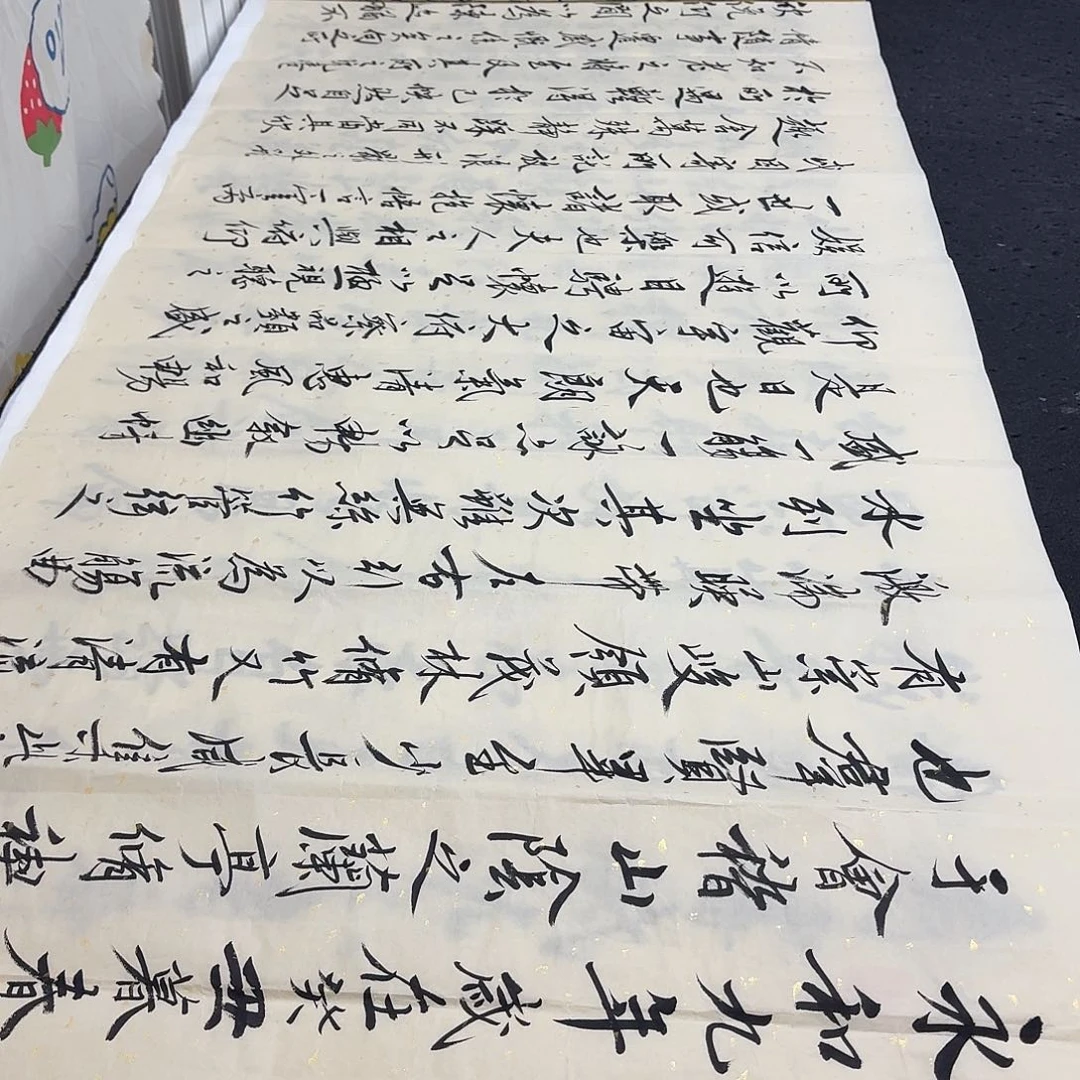 永和九年歲在癸丑暮春
于會稽山陰之蘭亭脩禊
也羣賢畢至少長咸集此
有崇山峻領茂林脩竹又有清流
激湍暎帶左右引以為流觴曲
水列坐其次雖無絲竹管弦之
盛一觴一詠亦足以暢敘幽情
是日也天朗氣清惠風和暢
仰觀宇宙之大俯察品類之盛
所以遊目騁懷足以極視聽之
娛信可樂也夫人之相與俯仰
一世或取諸懷抱悟言一室之內
或因寄所託放浪形骸之外
趣舍萬殊靜躁不同當其欣
於所遇蹔得於己怏然自足
不知老之將至及其所之既惓
情隨事遷感慨係之矣向之所
欣俛仰之間以為陳迹猶不